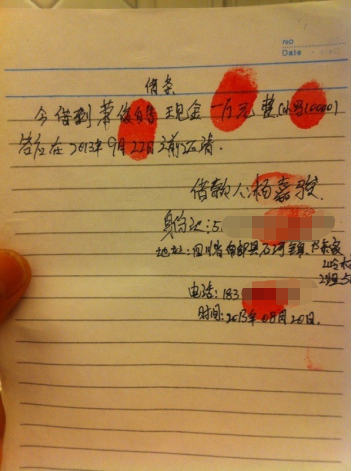 NO
Date
借条
今借到 现金 一万元 整(小写10000)
答应在2013年9月22日之前还清.
借款人:杨嘉骏.
身份证:5
地址:四川省南部县
电话:183
时间:2013年08月20日.